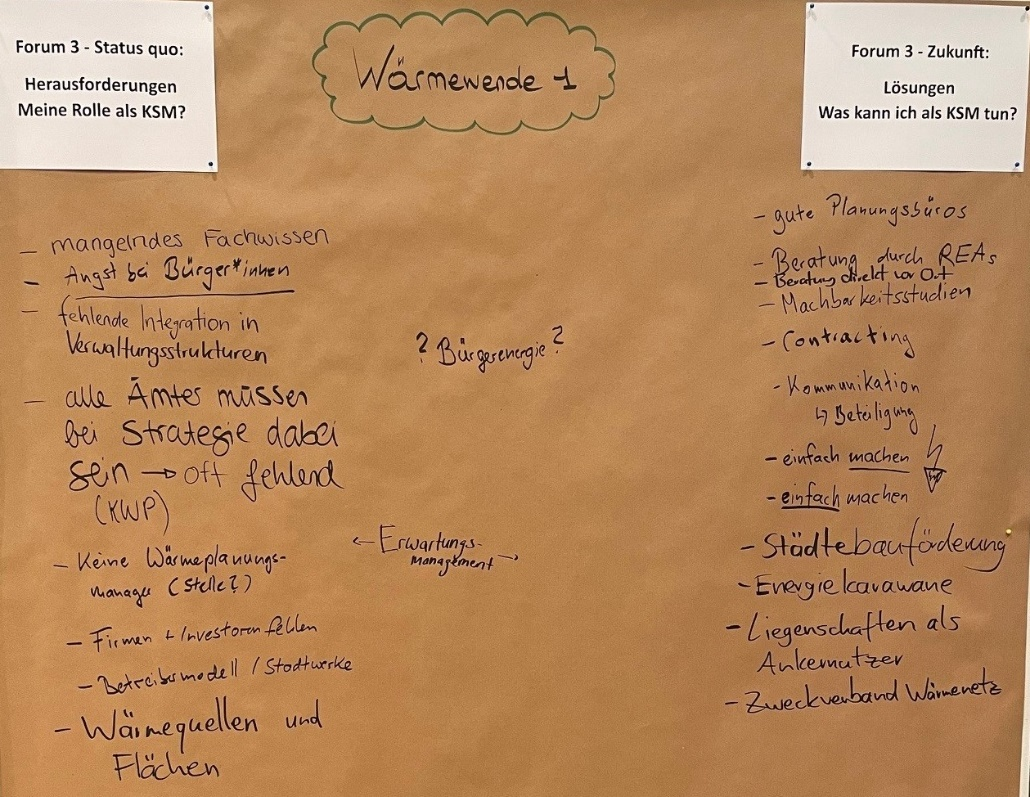 Forum 3 - Status quo:
Herausforderungen
Meine Rolle als KSM?
Wärmewende 1
Forum 3 - Zukunft:
Lösungen
Was kann ich als KSM tun?
- mangelndes Fachwissen
- Angst bei Bürger*innen
- fehlende Integration in
Verwaltungsstrukturen
- alle Ämter müssen
bei Strategie dabei
sein → oft fehlend
(KWP)
- Keine Wärmeplanungs-
manager (Stelle?)
- Firmen + Investoren fehlen
- Betreibermodell / Stadtwerke
- Wärmequellen und
Flächen
? Bürgerenergie ?
← Erwartungs-
management →
- gute Planungsbüros
- Beratung durch REAs
- Beratung direkt vor Ort
- Machbarkeitsstudien
- Contracting
- Kommunikation
↳ Beteiligung
- einfach machen
- einfach machen
- Städtebauförderung
- Energiekarawane
- Liegenschaften als
Ankernutzer
- Zweckverband Wärmenetz